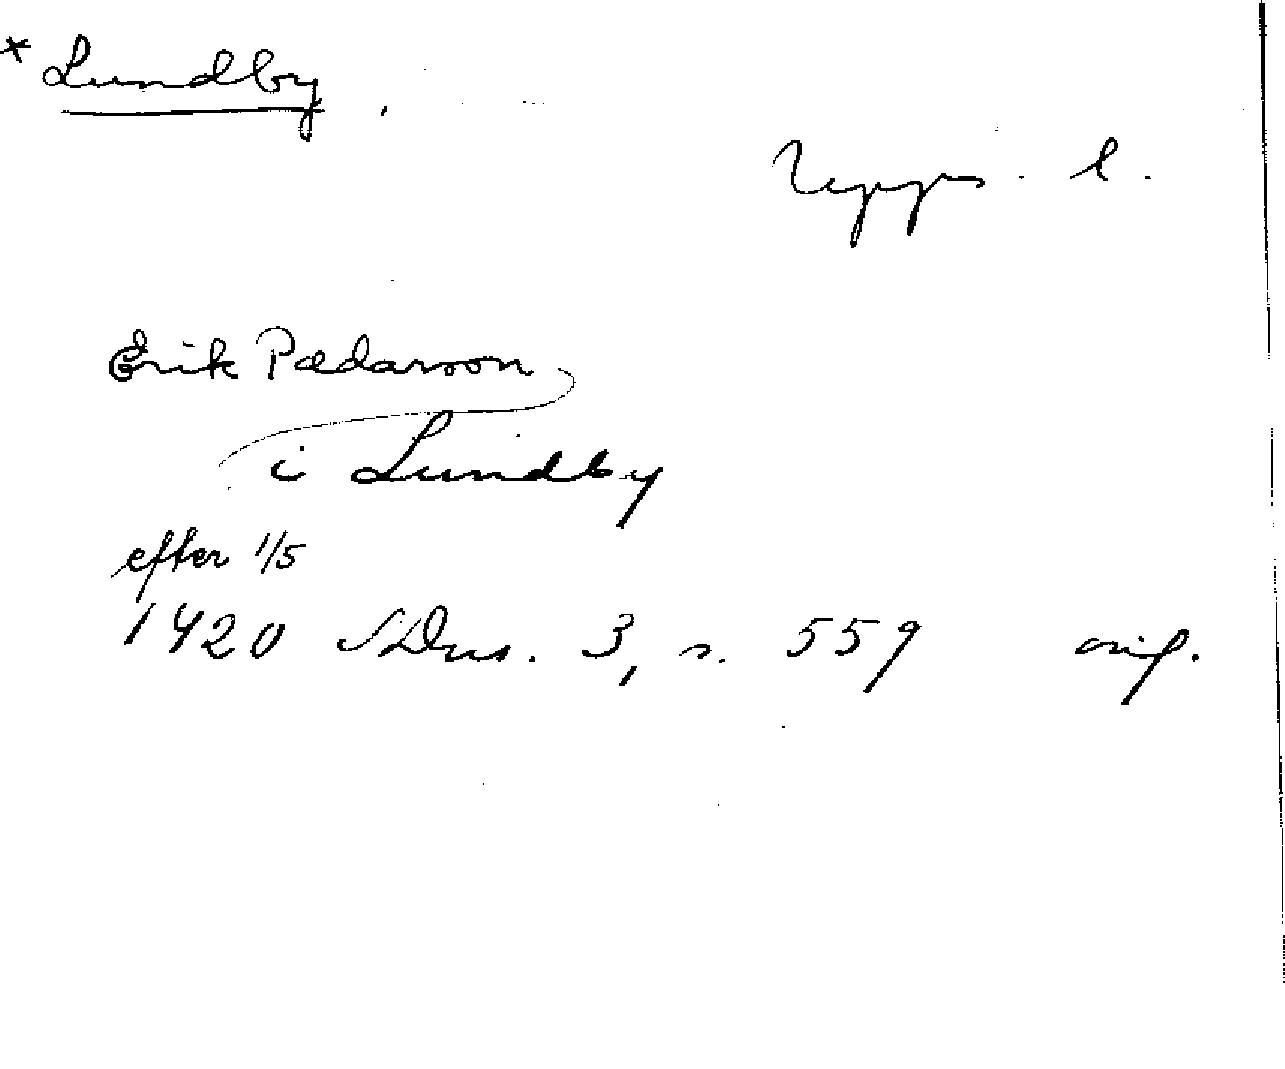 * Lundby
Upps. l.
Erik Pædarson
i Lundby
efter 1/5
1420 SDns. 3, s. 559 orig.